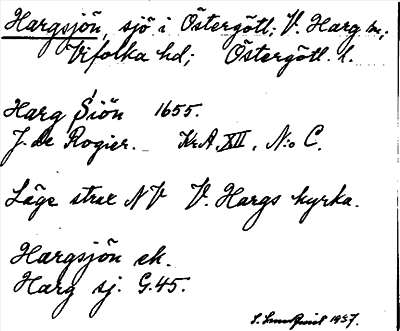 Hargsjön, sjö i Östergötl; V. Harg sn;
Vifolka hd; Östergötl. l.
Harg Siön 1655.
J. de Rogier. KrA. XII, N:o C.
Läge strax NV V. Hargs kyrka.
Hargsjön ek.
Harg sj. G.45.
1937.